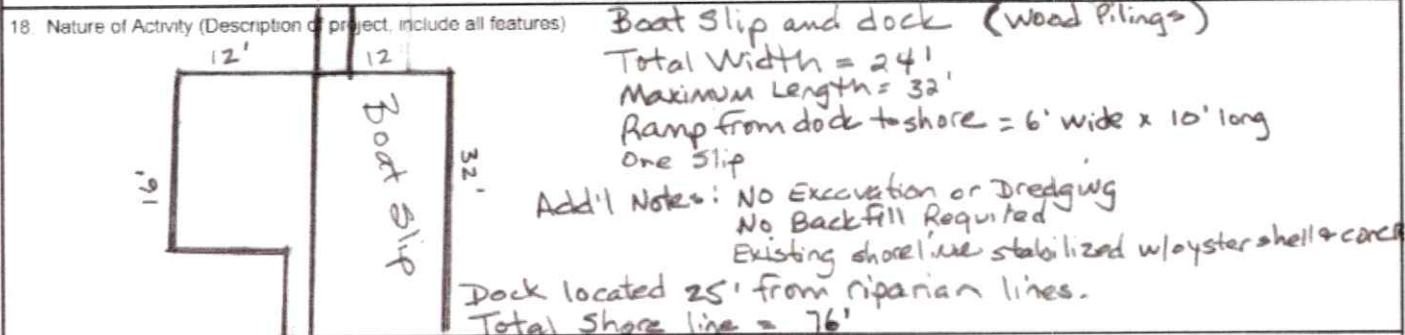 18. Nature of Activity (Description of project, include all features)
Boat Slip and dock (Wood Pilings)
12'
12
Total Width = 24'
Maximum Length = 32'
Ramp from dock to shore = 6' wide x 10' long
One Slip
Boat Slip
32'
16'
Add'l Notes: No Excavation or Dredging
No Backfill Required
Existing shoreline stabilized w/oyster shell &
Dock located 25' from riparian lines.
Total Shore line = 76'